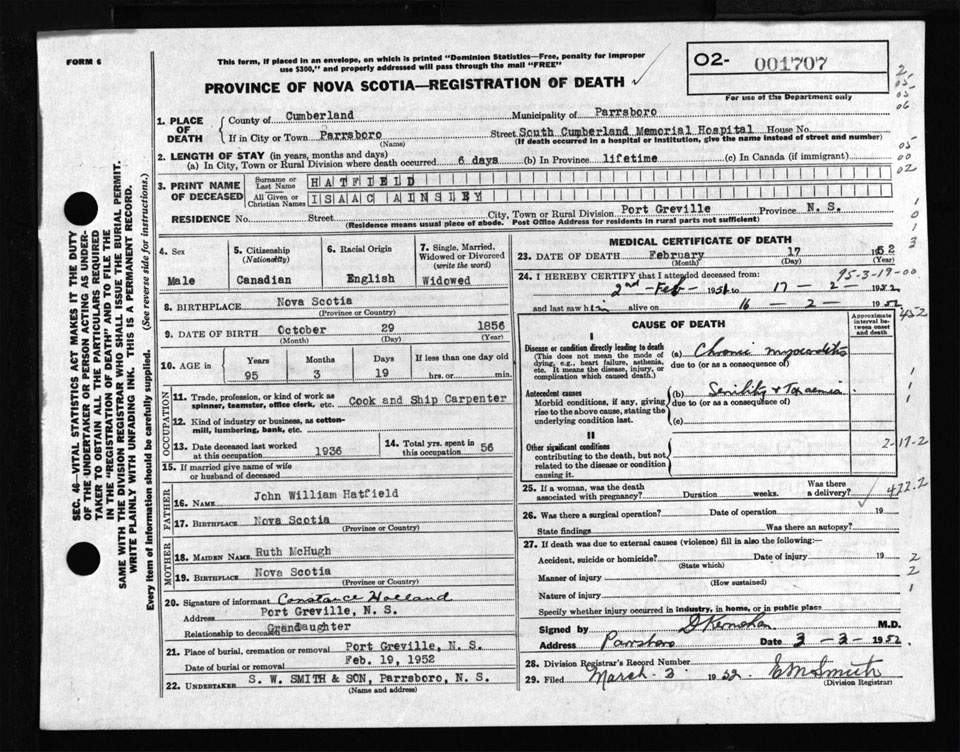 FORM 6
This form, if placed in an envelope, on which is printed "Dominion Statistics—Free, penalty for improper
use $300," and properly addressed will pass through the mail "FREE"
PROVINCE OF NOVA SCOTIA—REGISTRATION OF DEATH ✓
02- 001707
For use of the Department only
1. PLACE OF DEATH
County of Cumberland Municipality of Parrsboro
If in City or Town Parrsboro Street South Cumberland Memorial Hospital House No.
(Name) (If death occurred in a hospital or institution, give the name instead of street and number)
2. LENGTH OF STAY (in years, months and days)
(a) In City, Town or Rural Division where death occurred 6 days (b) In Province lifetime (c) In Canada (if immigrant)
3. PRINT NAME OF DECEASED
Surname or Last Name HATFIELD
All Given or Christian Names ISAAC AINSLEY
RESIDENCE No. Street City, Town or Rural Division Port Greville Province N. S.
(Residence means usual place of abode. Post Office Address for residents in rural parts not sufficient)
4. Sex
Male
5. Citizenship
(Nationality)
Canadian
6. Racial Origin
English
7. Single, Married,
Widowed or Divorced
(write the word)
Widowed
8. BIRTHPLACE Nova Scotia
(Province or Country)
9. DATE OF BIRTH October 29 1856
(Month) (Day) (Year)
10. AGE in Years Months Days If less than one day old
95 3 19 hrs. or min.
OCCUPATION
11. Trade, profession, or kind of work as
spinner, teamster, office clerk, etc. Cook and Ship Carpenter
12. Kind of industry or business, as cotton-
mill, lumbering, bank, etc.
13. Date deceased last worked
at this occupation 1936
14. Total yrs. spent in
this occupation 56
15. If married give name of wife
or husband of deceased
FATHER
16. Name John William Hatfield
17. Birthplace Nova Scotia
(Province or Country)
MOTHER
18. Maiden Name Ruth McHugh
19. Birthplace Nova Scotia
(Province or Country)
20. Signature of informant Constance Holland
Address Port Greville, N. S.
Relationship to deceased Grandaughter
21. Place of burial, cremation or removal Port Greville, N. S.
Date of burial or removal Feb. 19, 1952
22. Undertaker S. W. SMITH & SON, Parrsboro, N. S.
(Name and address)
MEDICAL CERTIFICATE OF DEATH
23. DATE OF DEATH February 17 1952
(Month) (Day) (Year)
24. I HEREBY CERTIFY that I attended deceased from: 95-3-19-00
2nd -Feb- 1951 to 17 - 2 - 1952
and last saw him alive on 16 - 2 - 1952
CAUSE OF DEATH
Approximate
interval be-
tween onset
and death
I
Disease or condition directly leading to death
(This does not mean the mode of
dying, e.g., heart failure, asthenia,
etc. It means the disease, injury, or
complication which caused death.)
(a) Chronic myocarditis
due to (or as a consequence of)
Antecedent causes
Morbid conditions, if any, giving
rise to the above cause, stating the
underlying condition last.
(b) Senility & Toxaemia
due to (or as a consequence of)
(c)
II
Other significant conditions
contributing to the death, but not
related to the disease or condition
causing it.
2-17-2
25. If a woman, was the death
associated with pregnancy? Duration weeks. Was there
a delivery?
422.2
26. Was there a surgical operation? Date of operation 19
State findings Was there an autopsy?
27. If death was due to external causes (violence) fill in also the following:—
Accident, suicide or homicide? Date of injury 19
(State which)
Manner of injury
(How sustained)
Nature of injury
Specify whether injury occurred in industry, in home, or in public place
Signed by M.D.
Address Parrsboro Date 3 - 3 - 1952
28. Division Registrar's Record Number
29. Filed March 3 1952 E M Smith
(Division Registrar)
SEC. 46—VITAL STATISTICS ACT MAKES IT THE DUTY
OF THE UNDERTAKER OR PERSON ACTING AS UNDER-
TAKER TO OBTAIN ALL THE PARTICULARS REQUIRED
IN THE "REGISTRATION OF DEATH" AND TO FILE THE
SAME WITH THE DIVISION REGISTRAR WHO SHALL ISSUE THE BURIAL PERMIT.
WRITE PLAINLY WITH UNFADING INK. THIS IS A PERMANENT RECORD.
Every item of information should be carefully supplied. (See reverse side for instructions.)